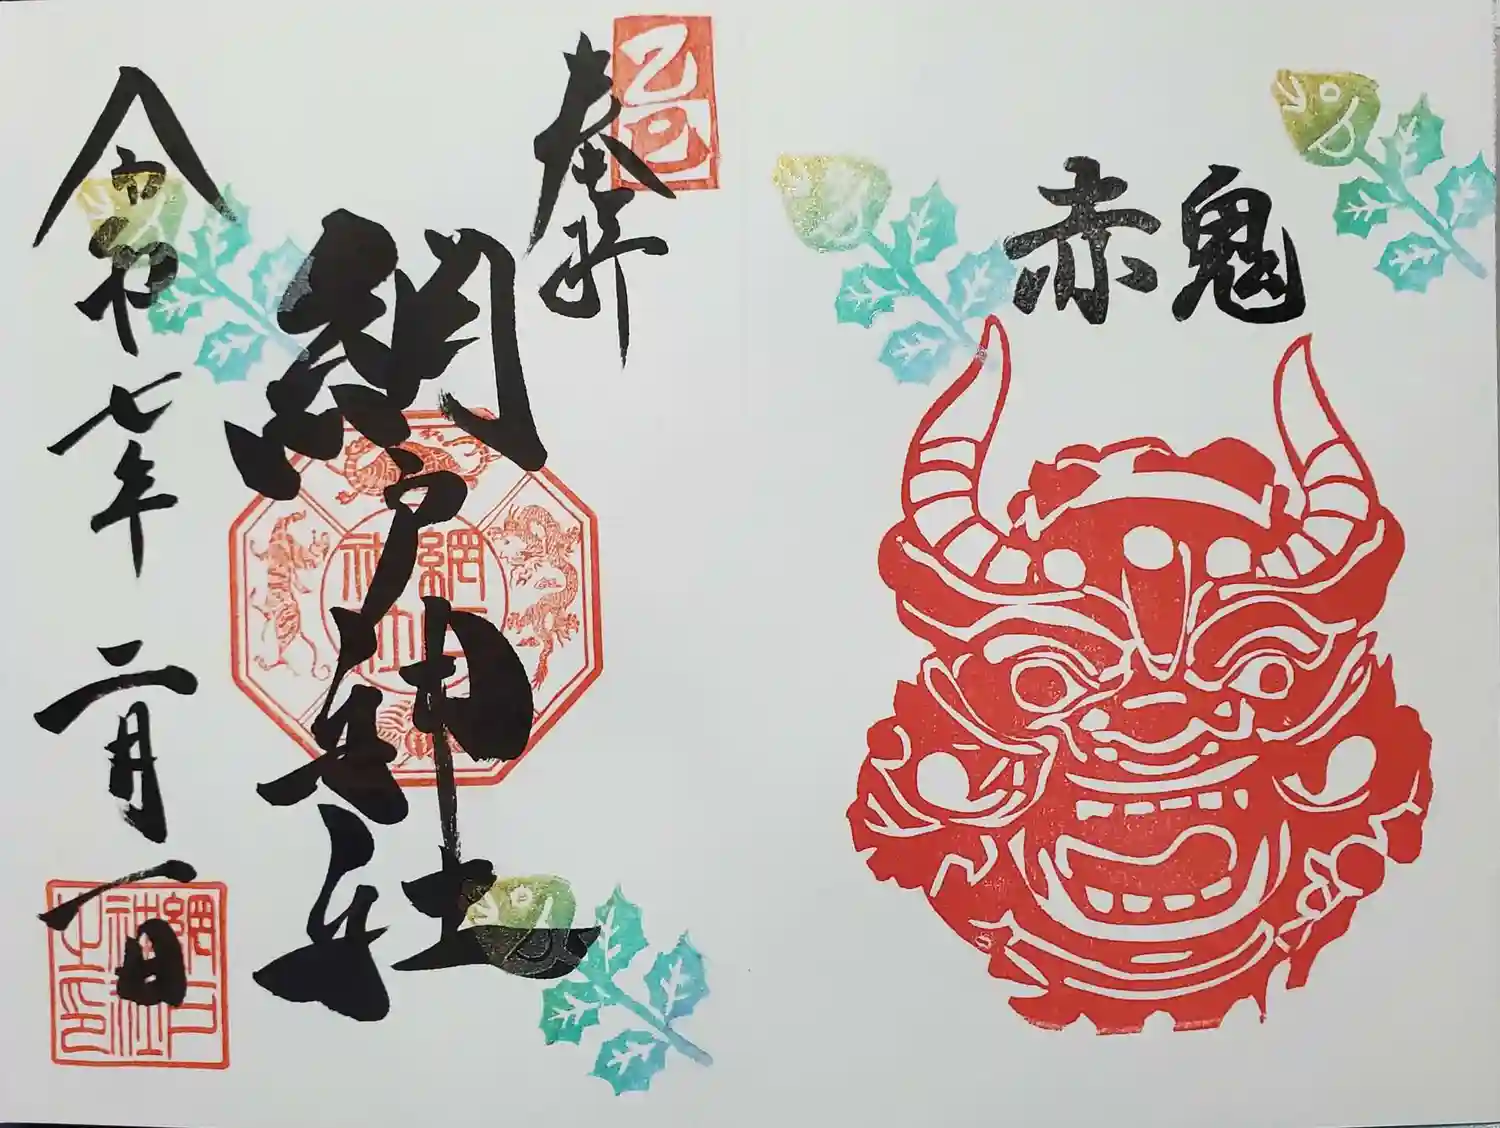 赤鬼
乙巳
奉拝
網戸神社
網戸神社
令和七年 二月一日
網戸神社之印